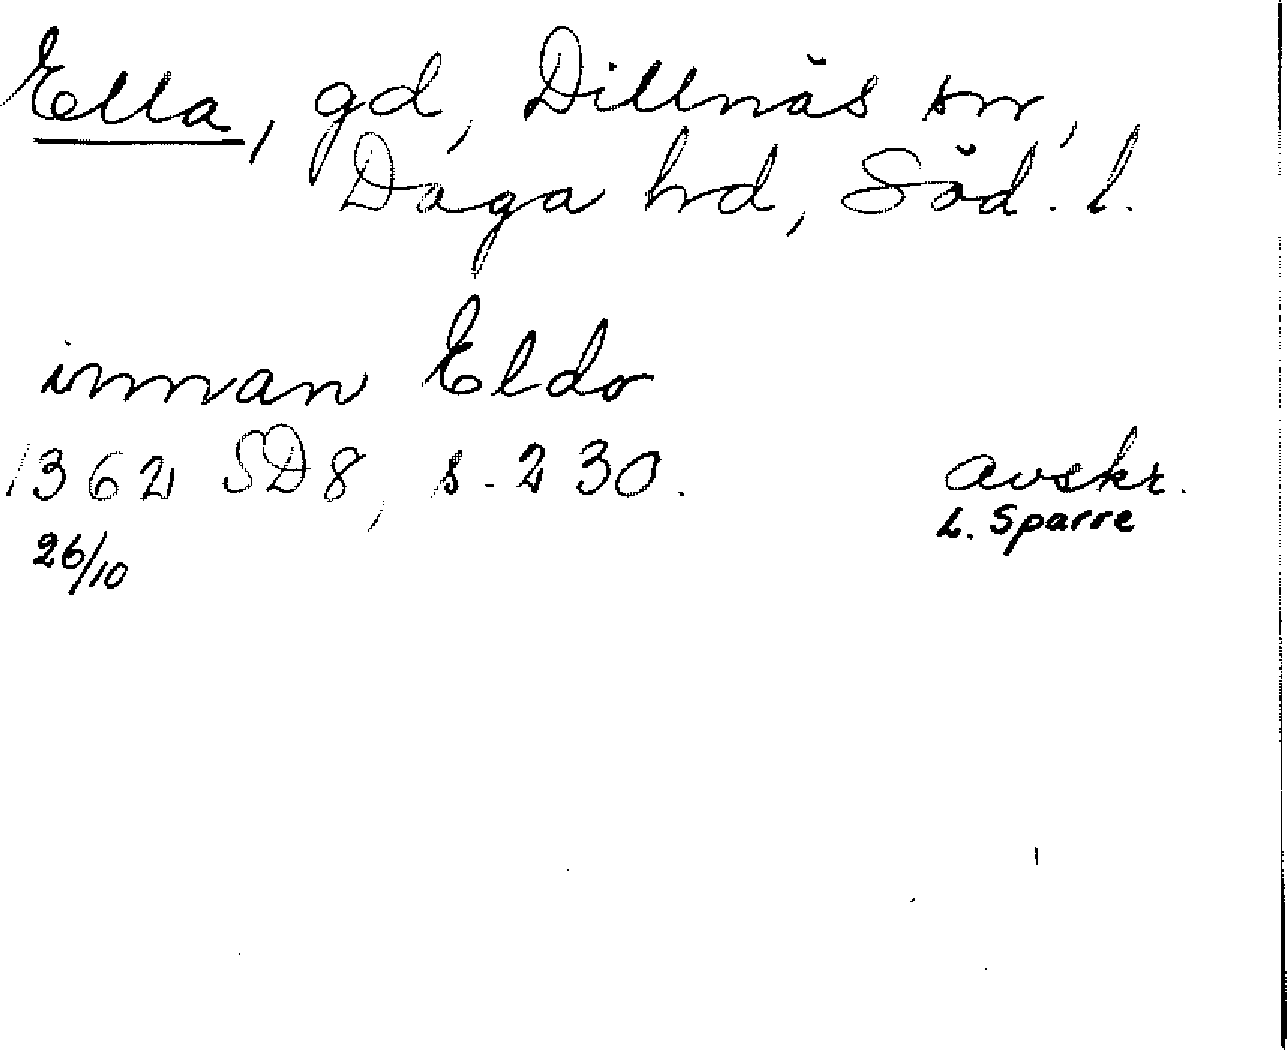 Ella, gd, Dillnäs sn,
Daga hd, Söd. l.
innan Eldo
1362 SD8, s. 230. avskr.
L. Sparre
26/10